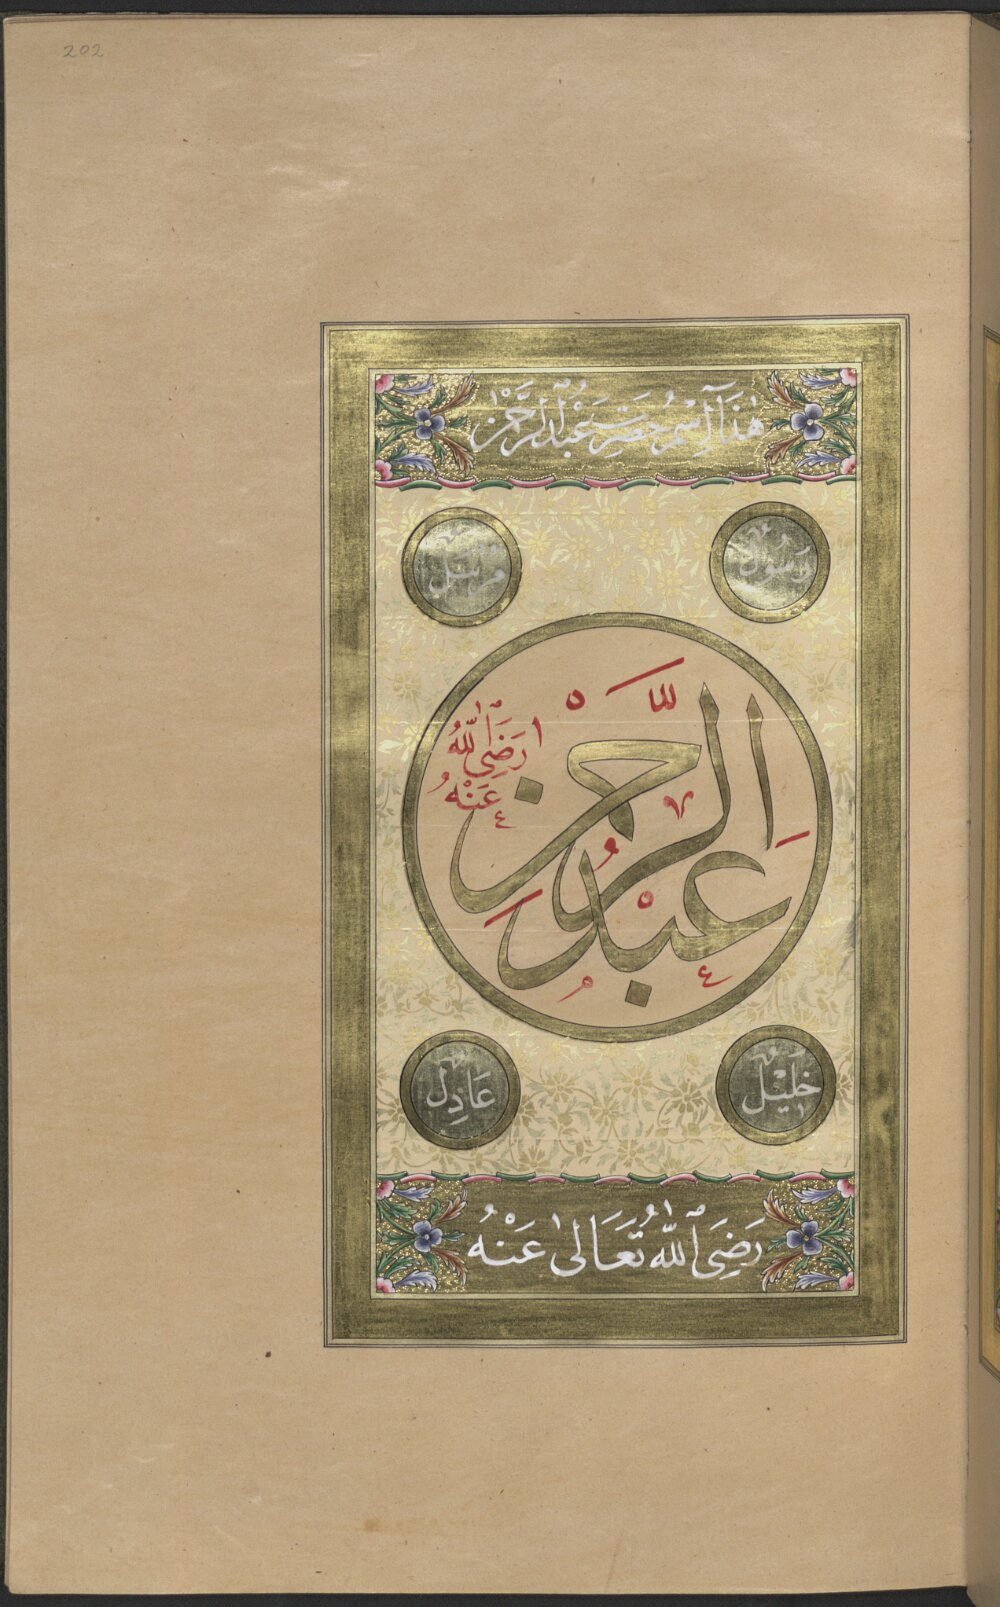 202
هٰذَا اِسْمُ حَضْرَتِ عَبْدُ الرَّحْمٰنْ
رَسُولْ
عَبْدُ الرَّحْمٰن
رَضِىَ اللّٰهُ
عَنْهُ
خَلِيْلْ
عَادِلْ
رَضِىَ اللّٰهُ تَعَالىٰ عَنْهُ